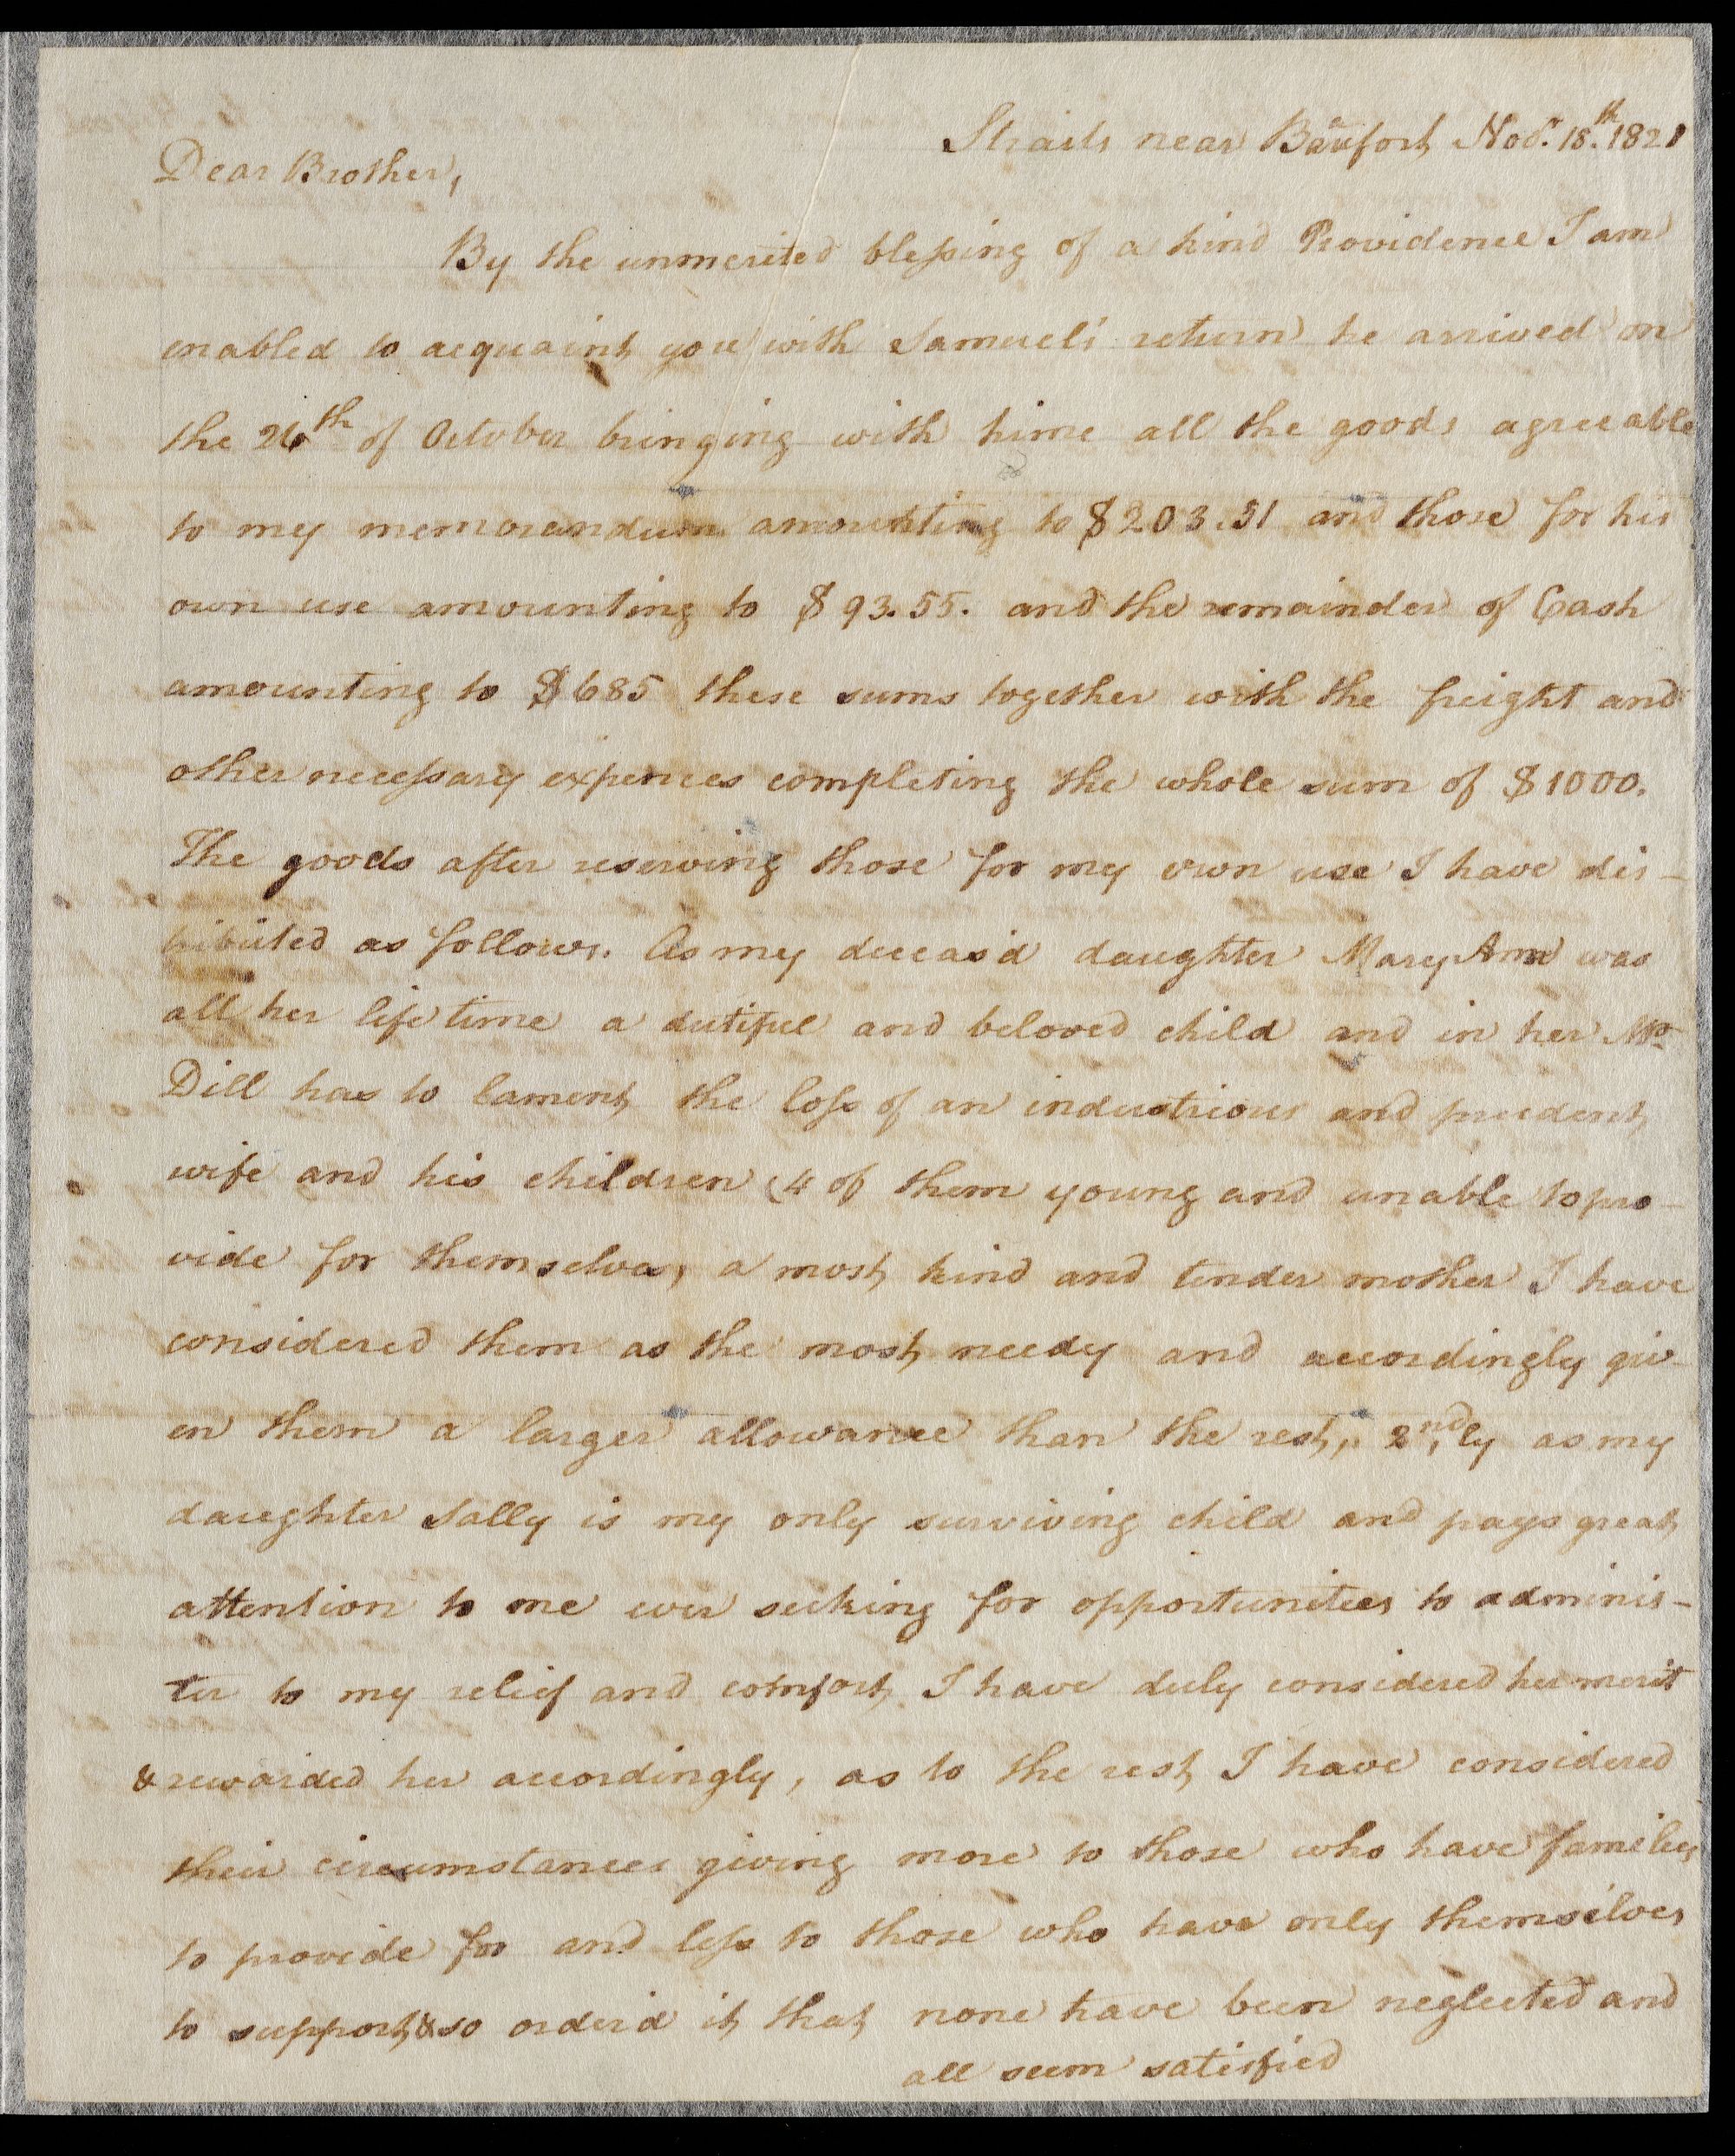 Straits near Beaufort Novr. 18.th 1821
Dear Brother,
By the unmerited blessing of a kind Providence I am
enabled to acquaint you with Samuel's return he arrived on
the 26th of October bringing with hime all the goods agreeable
to my memorandum amounting to $203.51 and those for his
own use amounting to $93.55. and the remainder of Cash
amounting to $685 these sums together with the freight and
other necessary expences completing the whole sum of $1000.
The goods after reserving those for my own use I have dis-
tributed as follows. As my deceas'd daughter Mary Ann was
all her life time a dutiful and beloved child and in her Mr
Dill has to lament the loss of an industrious and prudent
wife and his children (4 of them young and unable to pro-
vide for themselves) a most kind and tender mother I have
considered them as the most needy and accordingly giv-
en them a larger allowance than the rest, 2nd,ly as my
daughter Sally is my only surviving child and pays great
attention to me ever seeking for opportunities to adminis-
ter to my relief and comfort I have duly considered her merit
& rewarded her accordingly, as to the rest I have considered
their circumstances giving more to those who have families
to provide for and less to those who have only themselves
to support, & so order'd it that none have been neglected and
all seem satisfied